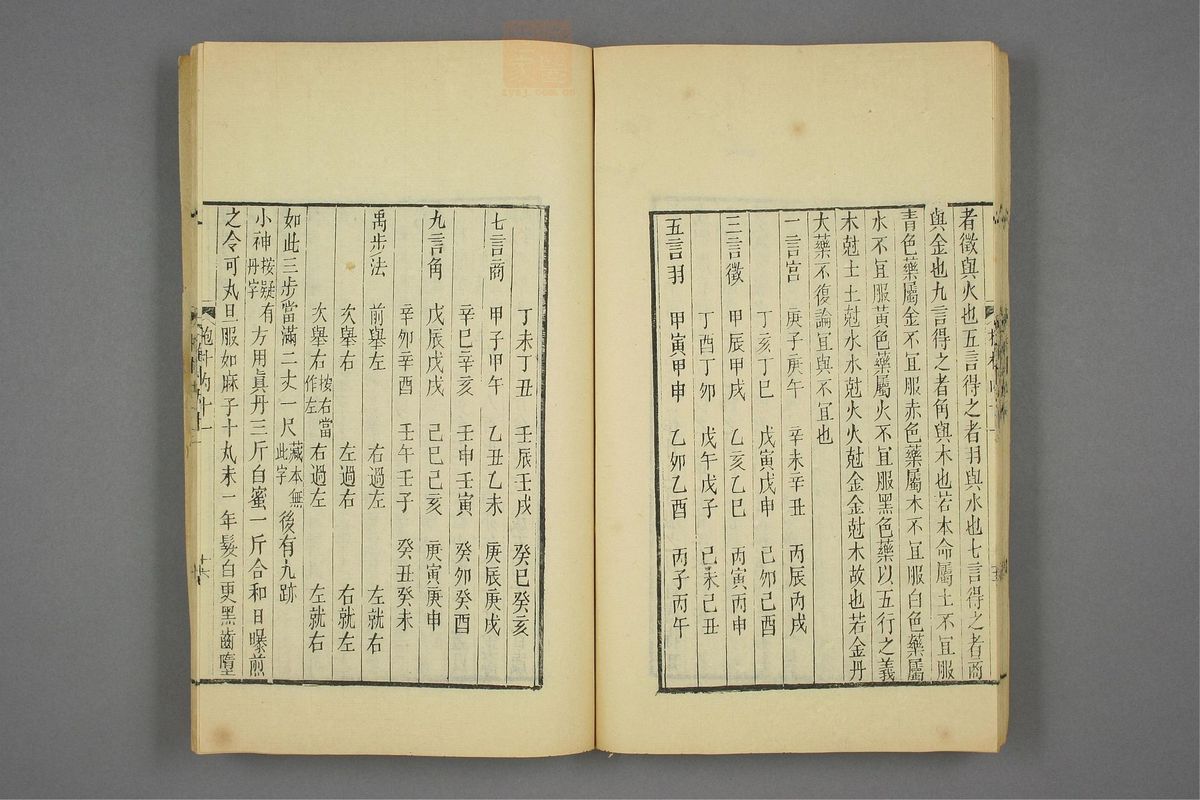 者徵與火也五言得之者羽與水也七言得之者商
與金也九言得之者角與木也若本命屬土不宜服
青色藥屬金不宜服赤色藥屬木不宜服白色藥屬
水不宜服黃色藥屬火不宜服黑色藥以五行之義
木尅土土尅水水尅火火尅金金尅木故也若金丹
大藥不復論宜與不宜也
一言宮 庚子庚午 辛未辛丑 丙辰丙戌
丁亥丁巳 戊寅戊申 己卯己酉
三言徵 甲辰甲戌 乙亥乙巳 丙寅丙申
丁酉丁卯 戊午戊子 己未己丑
五言羽 甲寅甲申 乙卯乙酉 丙子丙午
丁未丁丑 壬辰壬戌 癸巳癸亥
七言商 甲子甲午 乙丑乙未 庚辰庚戌
辛巳辛亥 壬申壬寅 癸卯癸酉
九言角 戊辰戊戌 己巳己亥 庚寅庚申
辛卯辛酉 壬午壬子 癸丑癸未
禹步法 前舉左 右過左 左就右
次舉右 左過右 右就左
次舉右按右當作左 右過左 左就右
如此三步當滿二丈一尺藏本無此字後有九跡
小神按疑有丹字方用眞丹三斤白蜜一斤合和日曝煎
之令可丸旦服如麻子十丸未一年髮白更黑齒墮
抱朴內十一
十六
zysj.com.cn